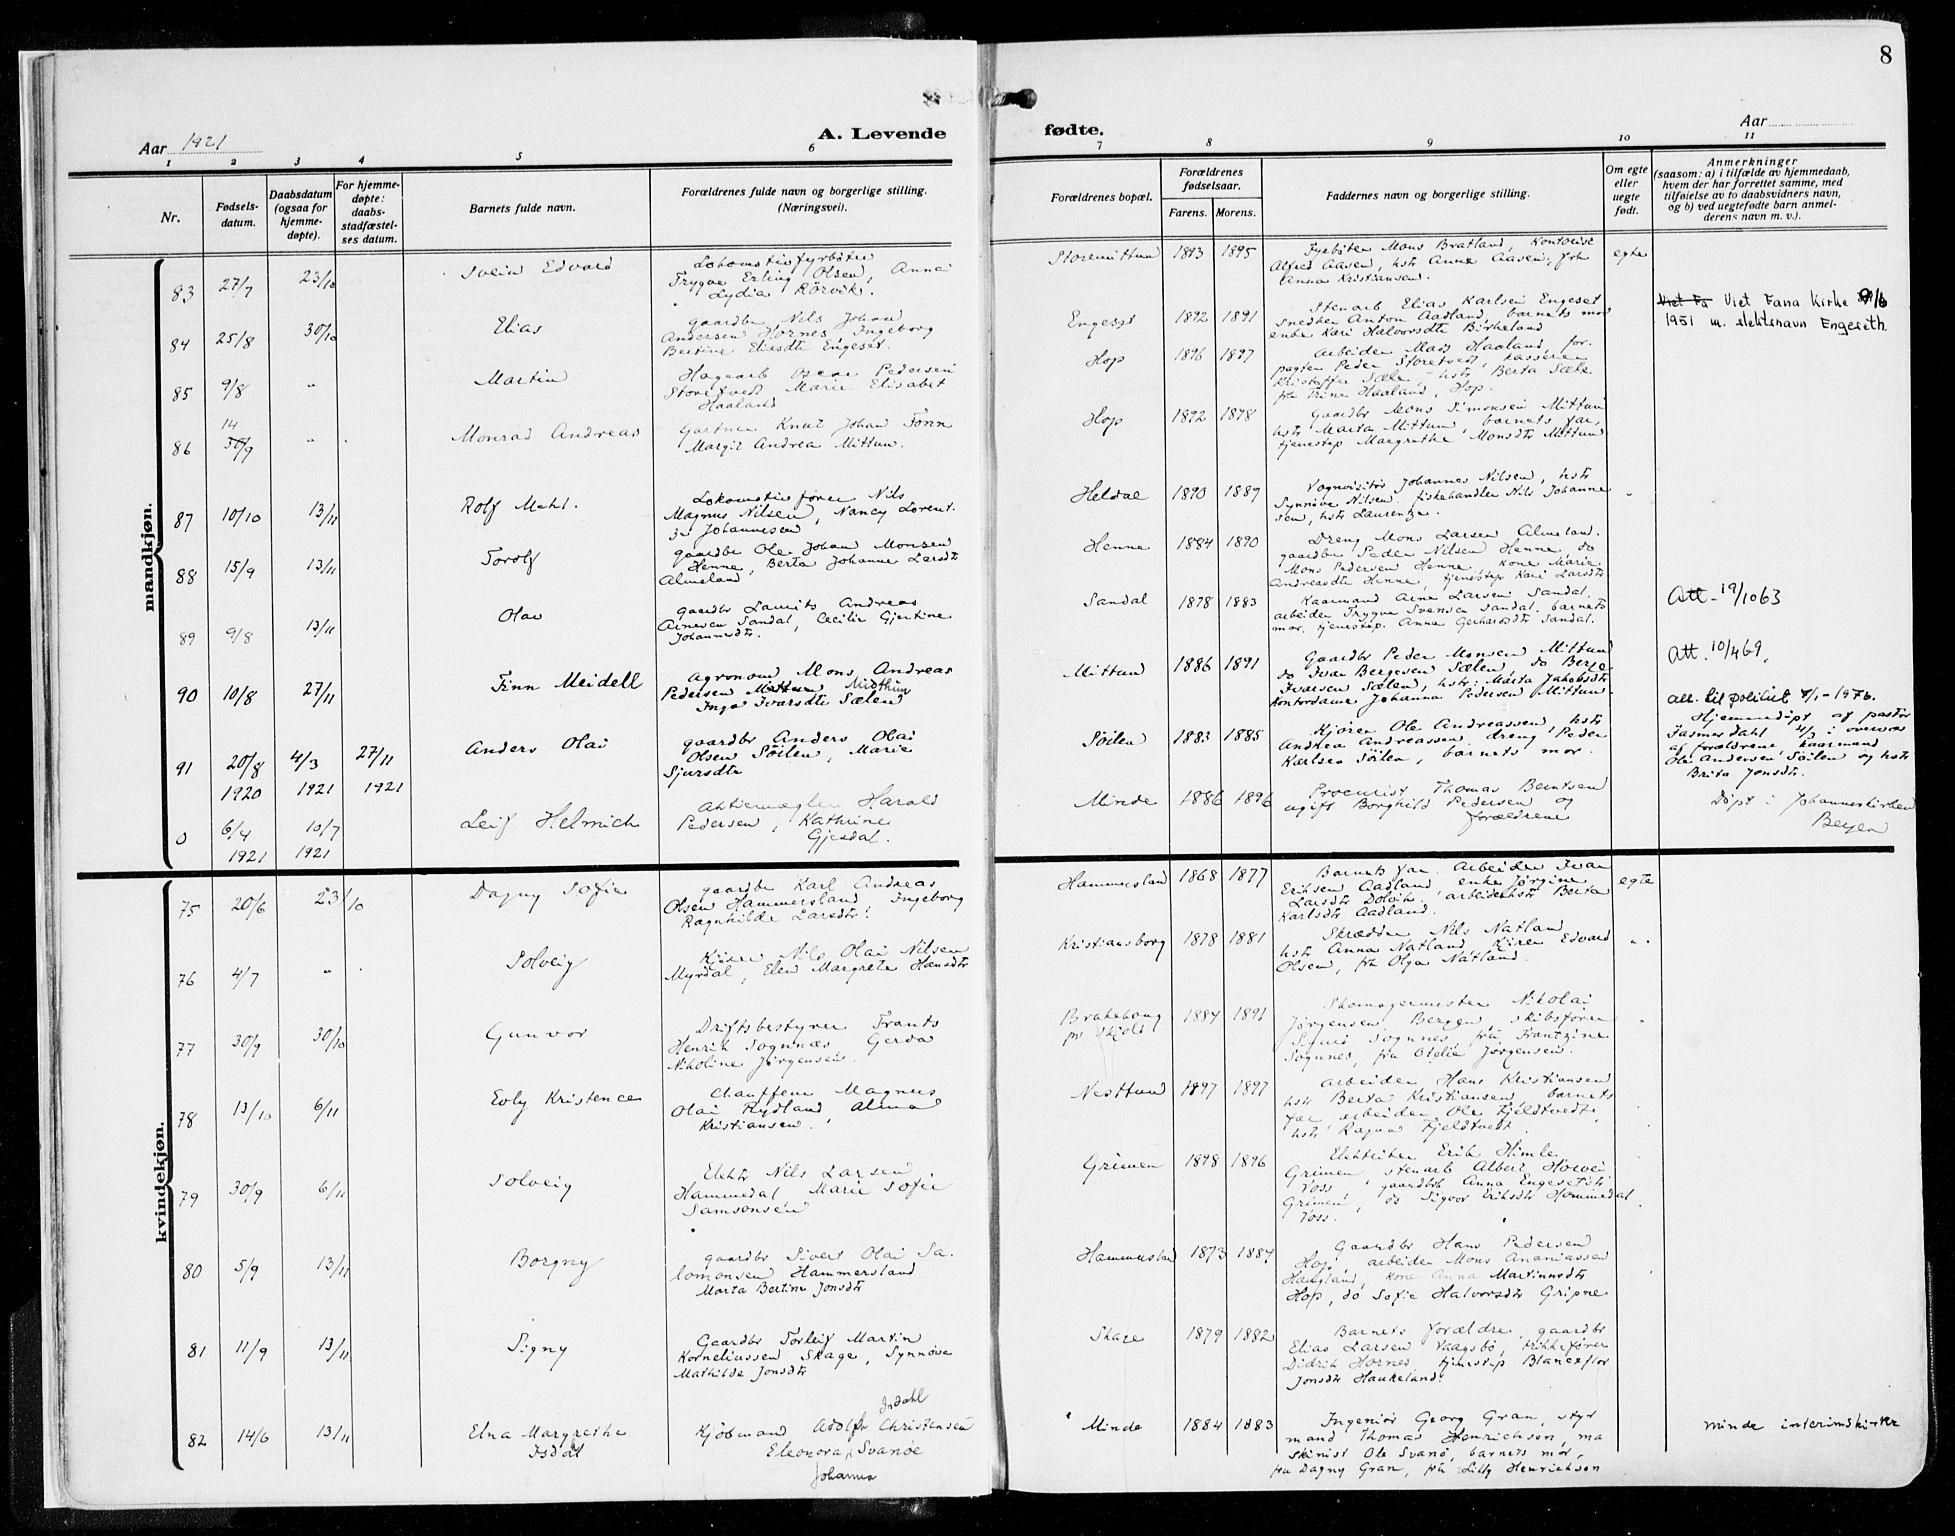 8
A. Levende fødte.
Aar 1921
Aar
1 2 3 4 5 6 7 8 9 10 11
Nr.
Fødsels-
datum.
Daabsdatum
(ogsaa for
hjemme-
døpte).
For hjemme-
døpte:
daabs-
stadfæstel-
ses datum.
Barnets fulde navn.
Forældrenes fulde navn og borgerlige stilling.
(Næringsvei).
Forældrenes bopæl.
Forældrenes
fødselsaar.
Farens. Morens.
Faddernes navn og borgerlige stilling.
Om egte
eller
uegte
født.
Anmerkninger
(saasom: a) i tilfælde av hjemmedaab,
hvem der har forrettet samme, med
tilføielse av to daabsvidners navn,
og b) ved uegtefødte barn anmel-
derens navn m. v.).
mandkjøn.
83 27/7 23/10 Svein Edvard
Lokomotivfyrbøter
Trygve Erling Olsen, Anna
Lydia Rörvik.
Storemittun 1893 1895
Fyrbøter Mons Bratland, Kontorist
Alfred Aasen, hstr Anne Aasen, frk
Anna Kristiansen.
egte
84 25/8 30/10 Elias
gaardbr Nils Johan
Andersen Hornes, Ingeborg
Bertine Eliasdtr Engeset.
Engeset 1892 1891
Stenarb Elias Karlsen Engeset
Snedker Anton Aadland, barnets mor
enke Kari Halvorsdtr Birkeland
Viet Fa Viet Fana Kirke 9/6
1951 m. slektsnavn Engeseth.
85 9/8 " Martin
Hagearb Oscar Pedersen
Storetvedt Marie Elisabet
Haaland
Hop 1896 1897
Arbeider Mads Haaland, for-
pagter Peder Storetvedt, kasserer
Kristoffer Sæle, hstr Berta Sæle
frk Trine Haaland, Hop.
86 14 30/9 " Monrad Andreas
Gartner Knut Johan Tönn
Margit Andrea Mittun.
Hop 1892 1898
Gaardbr Mons Simonsen Mittun
hstr Marta Mittun, barnets far,
tjenestep Margrethe Monsdtr Mittun
87 10/10 13/11 Rolf Mehl.
Lokomotivfører Nils
Magnus Nilsen, Nancy Lorent-
ze Johannesen
Heldal 1890 1889
Vognvisitør Johannes Nilsen, hstr
Synnøve Nilsen. fiskehandler Nils Johanne
sen, hstr Laurentze.
"
88 15/9 13/11 Torolf
gaardbr Ole Johan Monsen
Henne, Berta Johanne Larsdtr
Almeland
Henne 1884 1890
Dreng Mons Larsen Almeland.
gaardbr Peder Nilsen Henne, do
Mons Pedersen Henne, kone Marie
Andreasdtr Henne, tjenestep Kari Larsdtr
89 9/8 13/11 Olav
gaardbr Laurits Andreas
Arnesen Sandal, Cecilie Gjertine
Johannesdtr.
Sandal 1878 1883
Kaarmand Arne Larsen Sandal.
arbeider Trygve Svensen Sandal. barnets
mor. tjenestep. Anna Gerhardsdtr Sandal.
Att. 19/10 63
90 10/8 27/11 Finn Meidell
Agronom Mons Andreas
Pedersen Mittun Midthun
Inga Ivarsdtr Sælen
Mittun 1886 1891
Gaardbr Peder Monsen Mittun
do Ivar Bergesen Sælen, do Berge
Ivarsen Sælen, hstr: Marta Jakobsdtr
Kontordame Johanna Pedersen Mittun
Att. 10/4 69.
att. til politiet 7/1 - 1976.
91 20/8 1920 4/3 1921 27/11 1921 Anders Olai
gaardbr Anders Olai
Olsen Söilen, Marie
Sjursdtr
Söilen 1883 1885
Kjører Ole Andreassen, hstr
Andrea Andreassen dreng Peder
Karlsen Söilen, barnets mor.
Hjemmedøpt af pastor
Fasmer Dahl 4/3 i overvær
af forældrene, kaarmand
Ole Andersen Söilen og hstr
Brita Jonsdtr.
0 6/4 1921 10/7 1921 Leif Helmich
Aktiemægler Harald
Pedersen, Kathrine
Gjesdal.
Minde 1886 1896
Procurist Thomas Berntsen
ugift Borghild Pedersen og
forældrene
Døpt i Johanneskirken
Bergen
kvindekjøn.
75 20/6 23/10 Dagny Sofie
gaardbr Karl Andreas
Olsen Hammersland, Ingeborg
Ragnhilde Larsdtr.
Hammersland 1868 1877
Barnets far. Arbeider Ivar
Eriksen Aadland, enke Jørgine
Larsdtr Dolvik. arbeiderhstr Berta
Karlsdtr Aadland.
egte
76 4/7 " Solveig
Kjører Nils Olai Nilsen
Myrdal, Elen Margrete Hansdtr
Kristiansborg 1878 1881
Skrædder Nils Natland
hstr Anna Natland, Kjører Edvard
Olsen, frk Olga Natland.
"
77 30/9 30/10 Gunvor
Driftsbestyrer Frants
Henrik Sognnæs Gerda
Nikoline Jørgensen.
Brakehaug
pr Skjold
1884 1891
Skomagermester Nikolai
Jørgensen, Bergen, skibsfører
Sjurd Sognnes, fru Frantzine
Sognnes, fru Otelie Jørgensen.
78 13/10 6/11 Evly Kristence
Chauffeur Magnus
Olai Rydland, Alma
Kristiansen.
Nesttun 1897 1897
arbeider Hans Kristiansen
hstr Berta Kristiansen barnets
far, arbeider Ole Fjeldtvedt,
hstr Ragna Fjeldtvedt.
79 30/9 6/11 Solveig
Elektr Nils Larsen
Hammedal, Marie Sofie
Samsonsen
Grimen 1898 1896
Elektriker Erik Himle
Grimen, stenarb Albert Horvei
Voss, gaardbrk Anna Engesetdtr
Grimen, do Sigvor Eriksdtr Hammedal
Voss.
80 5/9 13/11 Borgny
gaardbr Sivert Olai Sa-
lomonsen Hammersland
Marta Bertine Jonsdtr
Hammersland 1873 1887
Gaardbr Hans Pedersen
Hop, arbeider Mons Ananiassen
Haugland, kone Anna Martinusdtr
Hop, do Sofie Halvorsdtr Gripne
81 11/9 13/11 Signy
Gaardbr Torleif Martin
Korneliussen Skage, Synnøve
Mathilde Jonsdtr
Skage 1879 1882
Barnets forældre, gaardbr
Elias Larsen Vaagsbø, trikkefører
Didrik Hornes, tjenestep Blanceflor
Jonsdtr Haukeland.
82 14/6 13/11 Elna Margrethe
Isdal
Isdahl
Kjøbmand Adolf Christensen
Eleonora Svanøe
Johanna
Minde 1884 1883
Ingeniør Georg Gran, styr
mand Thomas Henrichsen, ma
skinist Ole Svanø, barnets mor,
fru Dagny Gran, frk Lilly Henrichsen
Minde interimskirke